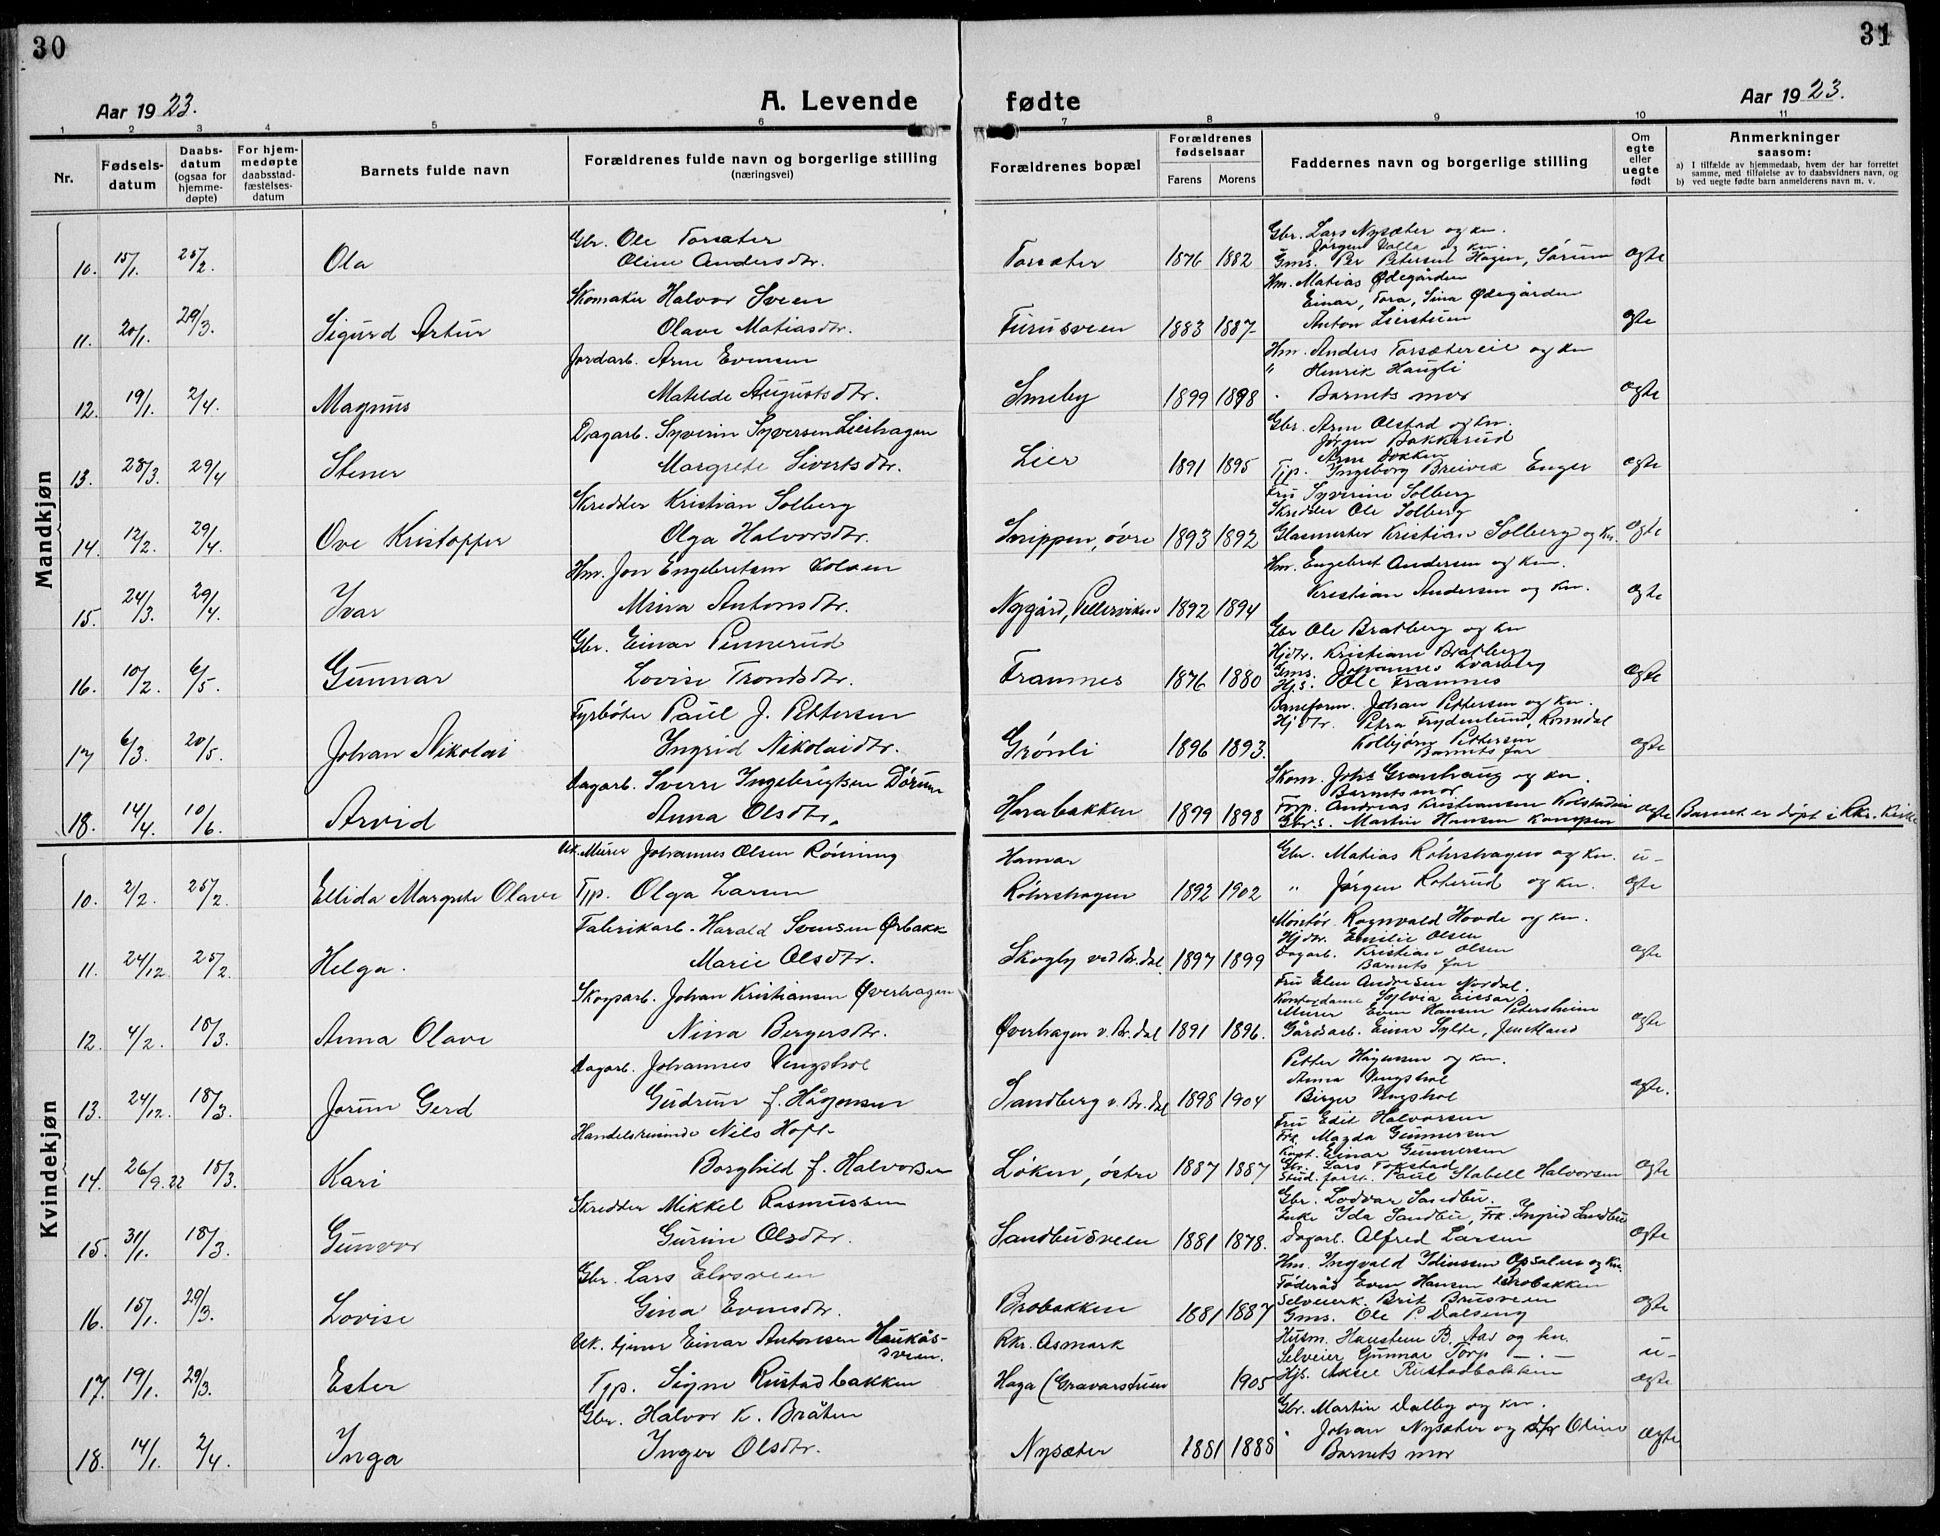 30
31
Aar 1923.
A. Levende fødte
Aar 1923.
1 2 3 4 5 6 7 8 9 10 11
Nr.
Fødselsdatum
Daabsdatum (ogsaa for hjemmedøpte)
For hjemmedøpte daabsstadfæstelsesdatum
Barnets fulde navn
Forældrenes fulde navn og borgerlige stilling (næringsvei)
Forældrenes bopæl
Forældrenes fødselsaar
Farens Morens
Faddernes navn og borgerlige stilling
Om egte eller uegte født
Anmerkninger saasom:
a) I tilfælde av hjemmedaab, hvem der har forrettet samme, med tilføielse av to daabsvidners navn, og
b) ved uegte fødte barn anmelderens navn m. v.
Mandkjøn
10. 15/1. 25/2. Ola
Gbr. Ole Torsæter
Oline Andersdtr.
Torsæter 1876 1882
Gbr. Lars Nysæter og kn.
Jørgen Dalla og kn.
Gms. Per Petersen Hagen, Sørum
ægte
11. 20/1. 29/3. Sigurd Artur
Skomaker Halvor Sveen
Olave Matiasdtr.
Furusveen 1883 1887
Hm. Matias Ødegården
Einar, Tora, Sina Ødegården
Anton Lierstuen
ægte
12. 19/1. 2/4. Magnus
Jordarb. Arne Evensen
Matilde Augustsdtr.
Smeby 1899 1898
Hm. Anders Torsætereie og kn
" Henrik Haugli
Barnets mor
ægte
13. 28/3. 29/4 Stener
Dagarb. Syverin Syversen Lierhagen
Margrete Sivertsdtr.
Lier 1891 1895
Gbr. Arne Olstad og kn.
Jørgen Bakkerud
Arne Dokken
Tjp. Ingeborg Breivik Enger
ægte
14. 12/2. 29/4. Ove Kristoffer
Skredder Kristian Solberg
Olga Halvorsdtr.
Snippen, øvre 1893 1892
Fru Syverine Solberg
Skredder Ole Solberg
Glasmester Kristian Solberg og kn.
ægte
15. 24/3. 29/4. Ivar
Hm. Jon Engebretsen Kolsen
Mina Antonsdtr.
Nygård, Pellerviken 1892 1894
Hm. Engebret Andersen og kn.
Kristian Andersen og kn.
ægte
16. 10/2. 6/5. Gunnar
Gbr. Einar Pennerud
Lovise Trondsdtr.
Framnes 1876 1880
Gbr Ole Bratberg og kn
Hjdtr. Kristiane Bratberg
Gms. Johannes Kvarberg
Hjs. Ole Framnes
ægte
17 6/3. 20/5. Johan Nikolai
Fyrbøter Paul J. Pettersen
Ingrid Nikolaidtr.
Grønli 1896 1893.
Baneform. Johan Pettersen og kn.
Hjdtr. Petra Frydenlund, Romedal
Kolbjørn Pettersen
Barnets far
ægte
18. 14/4. 10/6. Arvid
Dagarb. Sverre Ingebrigtsen Dørum
Anna Olsdtr.
Harabakken 1899 1898
Skom. Johs Granhaug og kn.
Barnets mor
Torp. Andreas Kristiansen Kolstadeie
Gbr.s. Martin Hansen Kampen
ægte Barnet er døpt i Rkr. Kirke
Kvindekjøn
10. 2/2. 25/2. Ellida Margrete Olave
Uk. Murer Johannes Olsen Rønning
Tjp. Olga Larsen
Hamar
Røhrshagen 1892 1902
Gbr. Matias Røhrshagen og kn.
" Jørgen Roterud og kn.
u-
ægte
11. 24/12. 25/2. Helga.
Fabrikarb. Harald Svensen Ørbakk
Marie Olsdtr.
Skogly ved Br.dal 1897 1899
Montør Ragnvald Hovde og kn.
Hjdtr. Emilie Olsen
Dagarb. Kristian Olsen
Barnets far
ægte
12. 4/2. 18/3. Anna Olave
Skogsarb. Johan Kristiansen Øverhagen
Nina Bergersdtr.
Øverhagen v. Br.dal 1891 1896.
Fru Elen Andresen Nordal.
Kontordame Sylvia
Murer Even Hansen Petersheim
Gårdsarb. Einar Sylte, Jemtland
ægte
13. 24/12. 18/3. Jorun Gerd
Dagarb. Johannes Vengshol
Gudrun f. Hågensen
Sandberg v. Br.dal 1898 1904
Petter Hågensen og kn.
Anna Vengshol
Birger Vengshol
ægte.
14. 26/9.22 18/3. Kari
Handelsreisende Nils Hoff
Borghild f. Halvorsen
Løken, østre 1887 1887
Fru Edit Halvorsen
Frk. Magda Gunnersen
Kapt. Einar Gunnersen
Gbr. Lars Fokstad
Stud. forst. Paul Stabell Halvorsen
ægte
15. 31/1. 18/3. Gunvor
Skredder Mikkel Rasmussen
Gurine Olsdtr.
Sandbusveen 1881 1878.
Gbr. Lodvar Sandbu.
Enke Ida Sandbu, Frk. Ingrid Sandbu
Dagarb. Alfred Larsen
ægte
16. 15/1. 29/3. Lovise
Gbr. Lars Elvsveen
Gina Evensdtr.
Brobakken 1881 1887
Hm. Ingvald Idinssen Opsalen og kn.
Føderåd Even Hansen Brobakken
Selveierk. Brit Brusveen
Gms. Ole P. Dalseng
ægte
17. 19/1. 29/3. Ester
Uk. tjener Einar Antonsen Haukåssveen.
Tjp. Signe Rustadbakken
Rkr. Åsmark
Haga (Gravarstuen 1905
Husm. Haustein B. Aas og kn.
Selveier Gunnar Torp — . —
Hjs. Aksel Rustadbakken
u-
ægte
18. 14/1. 2/4. Inga
Gbr. Halvor K. Bråten
Inger Olsdtr.
Nysæter 1881 1888
Gbr. Martin Dalby og kn.
" Johan Nysæter og dtr Oline
Barnets mor
ægte